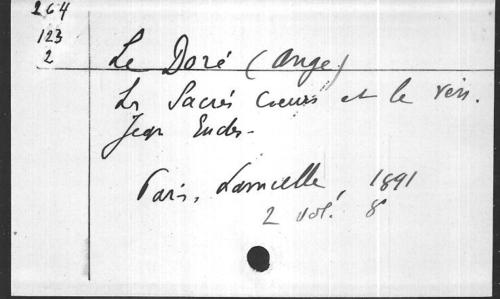 264
123
2
Le Doré (Ange)
Les Sacrés Coeurs et le Vén.
Jean Eudes.
Paris, Lamulle, 1891
2 vol. 8º